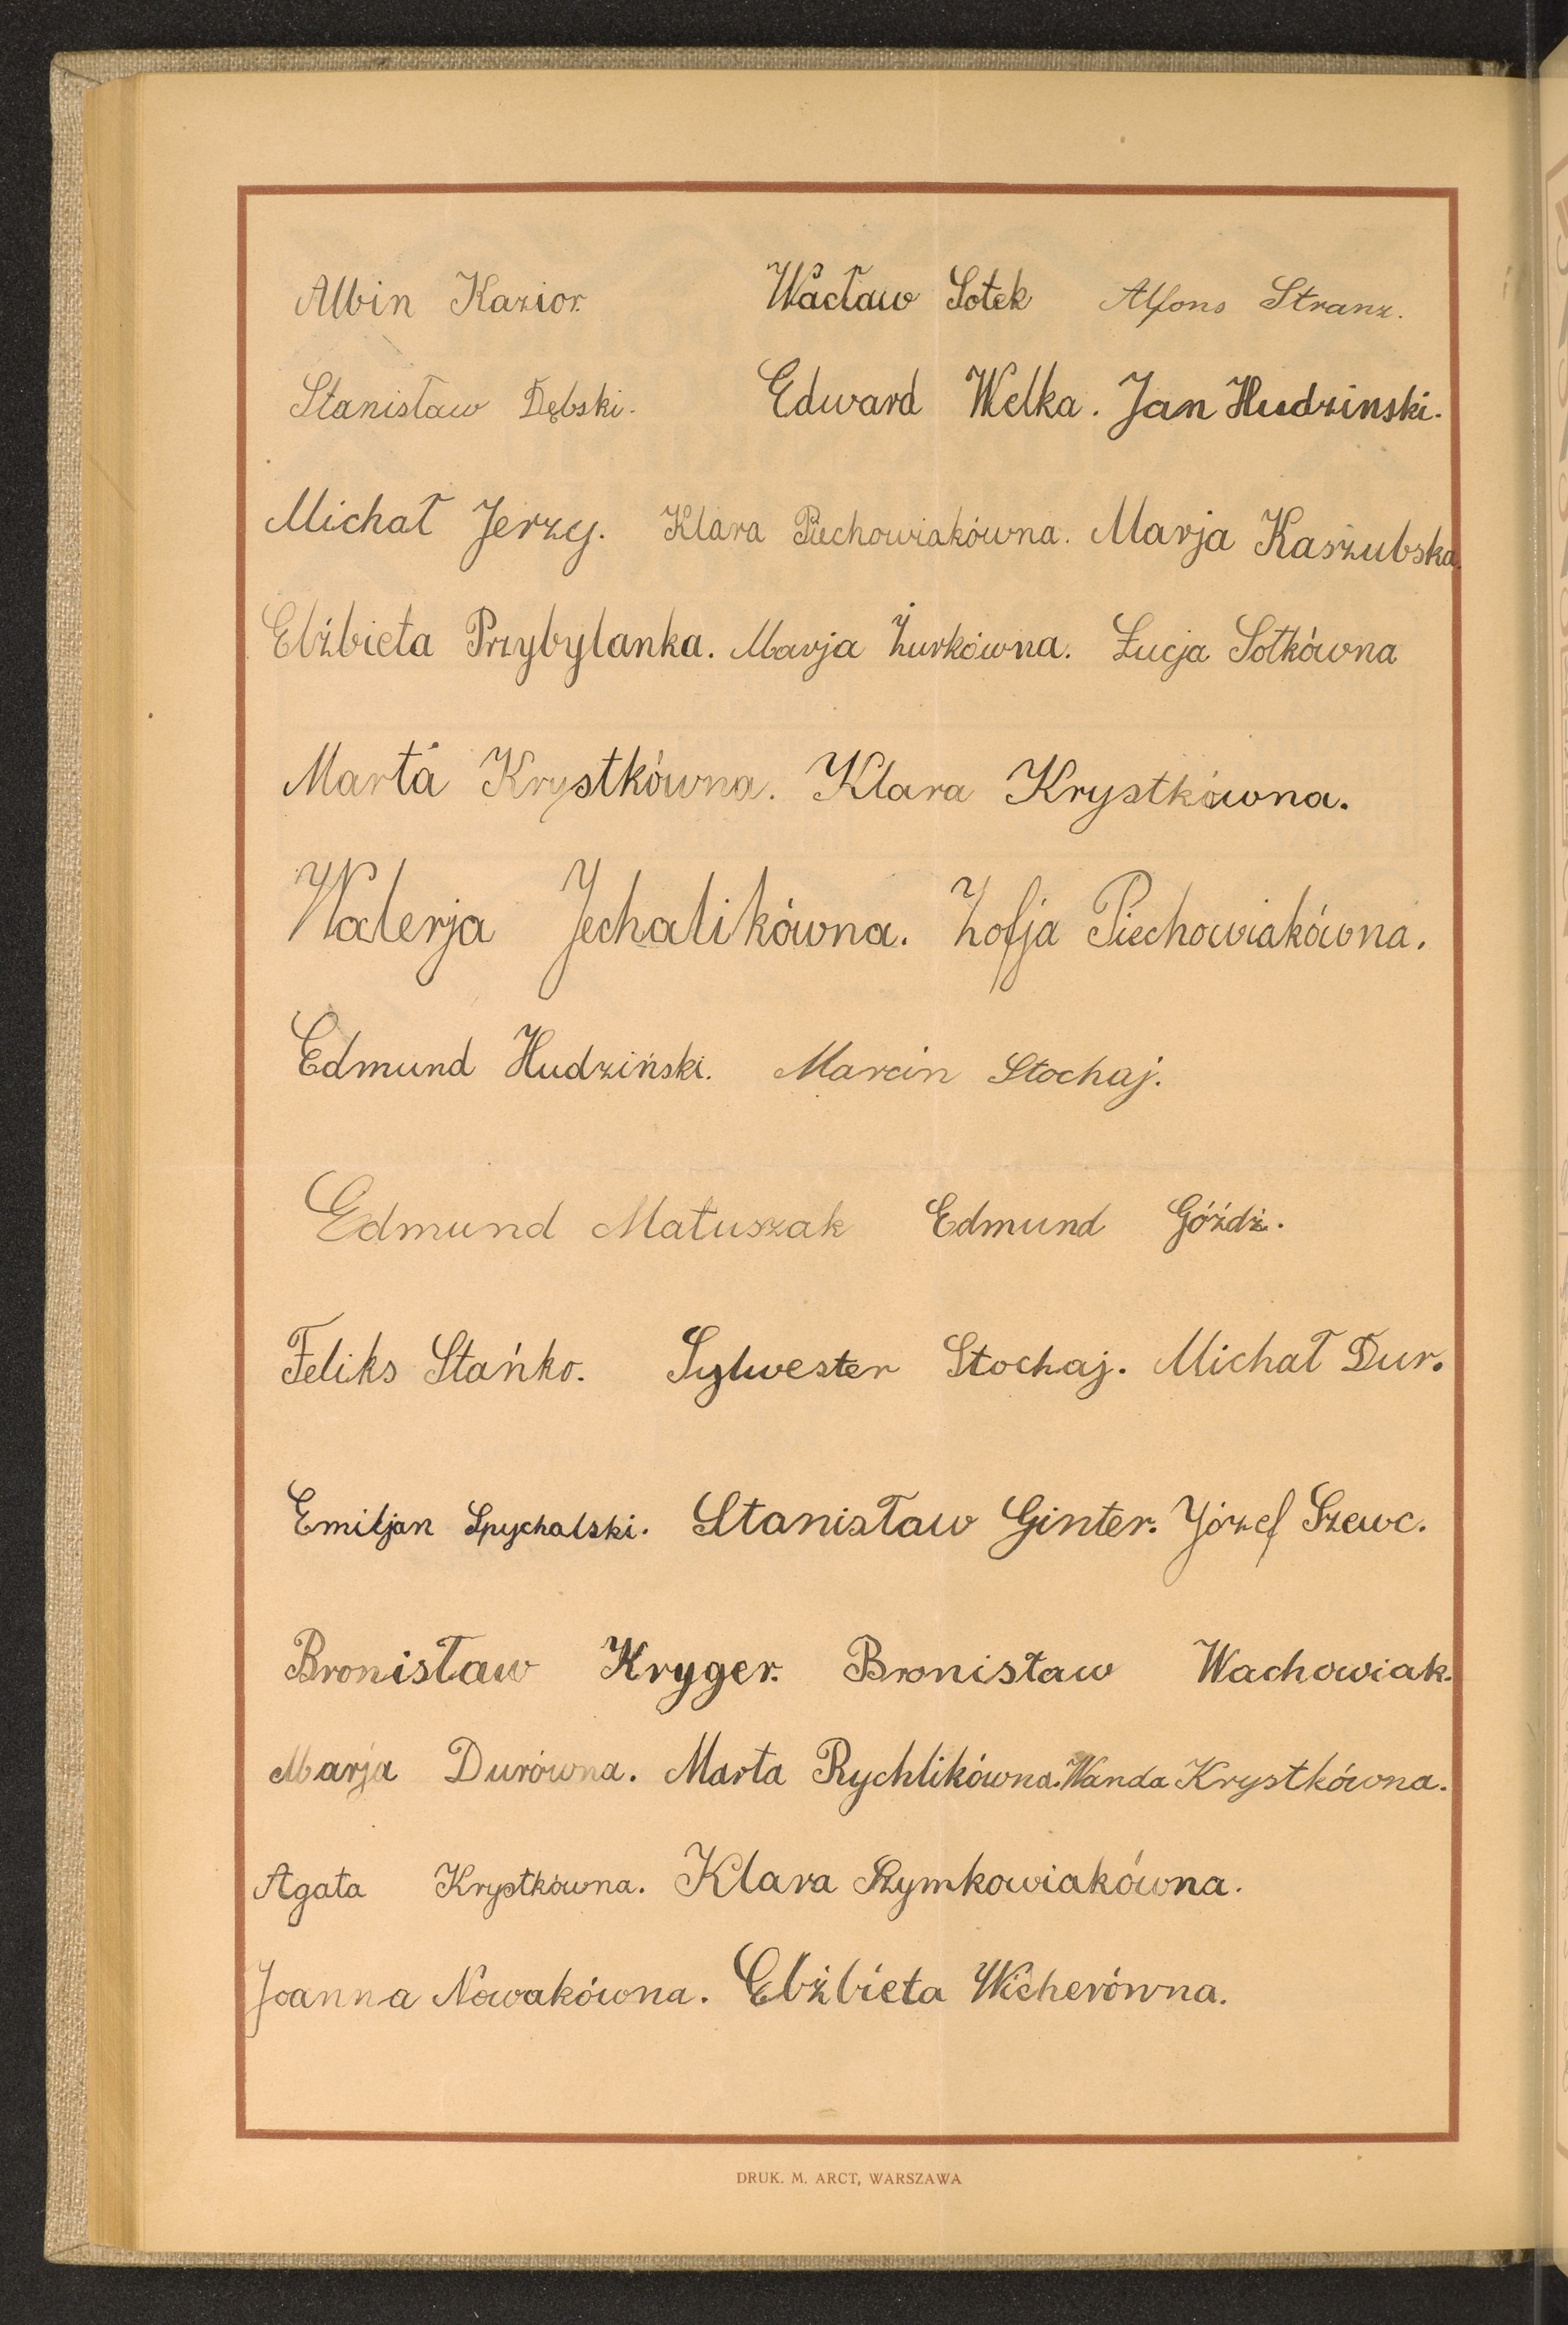 Albin Kazior. Wacław Sotek Alfons Stranz.
Stanisław Dębski. Edward Welka. Jan Hudzinski.
Michał Jerzy. Klara Piechowiakówna. Marja Kaszubska.
Elżbieta Przybylanka. Marja Żurkówna. Łucja Sotkówna
Marta Krystkówna. Klara Krystkówna.
Walerja Jechalikówna. Zofja Piechowiakówna.
Edmund Hudziński. Marcin Stochaj.
Edmund Matuszak Edmund Góźdź.
Feliks Stańko. Sylwester Stochaj. Michał Dur.
Emiljan Spychalski. Stanisław Ginter. Józef Szewc.
Bronisław Kryger. Bronisław Wachowiak.
Marja Durówna. Marta Rychlikówna. Wanda Krystkówna.
Agata Krystkówna. Klara Szymkowiakówna.
Joanna Nowakówna. Elżbieta Wicherówna.
DRUK. M. ARCT, WARSZAWA